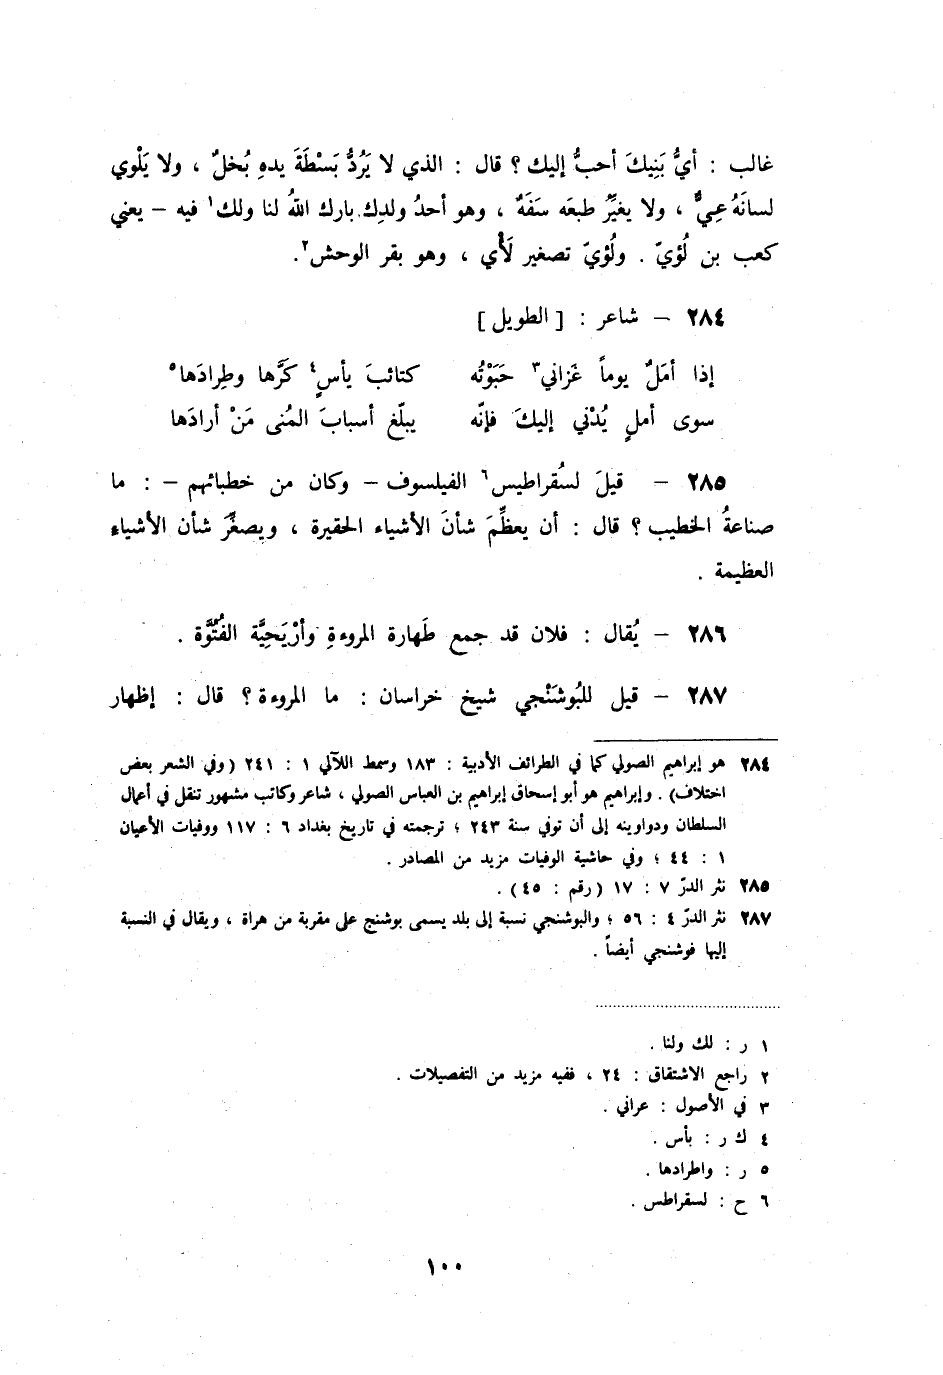 غالب : أيُّ بَنِيكَ أحبُّ إليك ؟ قال : الذي لا يَرُدُّ بَسْطَةَ يدهِ بُخلٌ ، ولا يَلْوي
لسانَهُ عِيٌّ ، ولا يغيِّرُ طبعَه سَفَهٌ ، وهو أحدُ ولدِك بارك اللهُ لنا ولك١ فيه – يعني
كعب بن لُؤيّ . ولُؤيّ تصغير لَأْي ، وهو بقر الوحش٢.
٢٨٤ – شاعر : [ الطويل ]
إذا أمَلٌ يوماً غَزاني٣ حَبَوْتُه كتائبَ يأسٍ٤ كَرَّها وطِرادَها٥
سوى أملٍ يُدْني إليكَ فإنّه يبلّغ أسبابَ المُنى مَنْ أرادَها
٢٨٥ – قيلَ لسُقراطيس٦ الفيلسوف – وكان من خطبائهم – : ما
صناعةُ الخطيب ؟ قال : أن يعظِّمَ شأنَ الأشياء الحقيرة ، ويصغِّرَ شأن الأشياءِ
العظيمة .
٢٨٦ – يُقال : فلان قد جمع طَهارة المروءةِ وأرْيَحِيَّة الفُتُوَّة .
٢٨٧ – قيل للبُوشَنْجي شيخ خراسان : ما المروءة ؟ قال : إظهار
٢٨٤ هو إبراهيم الصولي كما في الطرائف الأدبية : ١٨٣ وسمط اللآلي ١ : ٢٤١ (وفي الشعر بعض
اختلاف) . وإبراهيم هو أبو إسحاق إبراهيم بن العباس الصولي ، شاعر وكاتب مشهور تنقل في أعمال
السلطان ودواوينه إلى أن توفي سنة ٢٤٣ ؛ ترجمته في تاريخ بغداد ٦ : ١١٧ ووفيات الأعيان
١ : ٤٤ ؛ وفي حاشية الوفيات مزيد من المصادر .
٢٨٥ نثر الدرّ ٧ : ١٧ (رقم : ٤٥) .
٢٨٧ نثر الدرّ ٤ : ٥٦ ؛ والبوشنجي نسبة إلى بلد يسمى بوشنج على مقربة من هراة ، ويقال في النسبة
إليها فوشنجي أيضاً .
١ ر : لك ولنا .
٢ راجع الاشتقاق : ٢٤ ، ففيه مزيد من التفصيلات .
٣ في الأصول : عراني .
٤ ك ر : بأس .
٥ ر : واطرادها .
٦ ح : لسقراطس .
١٠٠